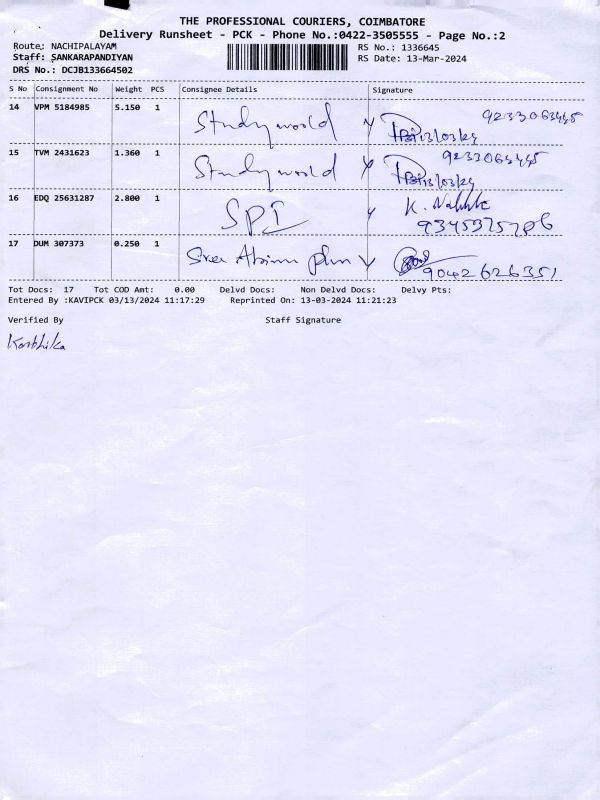 THE PROFESSIONAL COURIERS, COIMBATORE
Delivery Runsheet - PCK - Phone No.:0422-3505555 - Page No.:2
Route: NACHIPALAYAM
RS No.: 1336645
Staff: SANKARAPANDIYAN
RS Date: 13-Mar-2024
DRS No.: DCJB133664502
S No Consignment No Weight PCS Consignee Details Signature
14 VPM 5184985 5.150 1 Study world 9233063445
13/03/24
15 TVM 2431623 1.360 1 Study world 9233063445
13/03/24
16 EDQ 25631287 2.800 1 SPI K.
9345375706
17 DUM 307373 0.250 1 Sree
9042626351
Tot Docs: 17 Tot COD Amt: 0.00 Delvd Docs: Non Delvd Docs: Delvy Pts:
Entered By :KAVIPCK 03/13/2024 11:17:29 Reprinted On: 13-03-2024 11:21:23
Verified By Staff Signature
Karthika